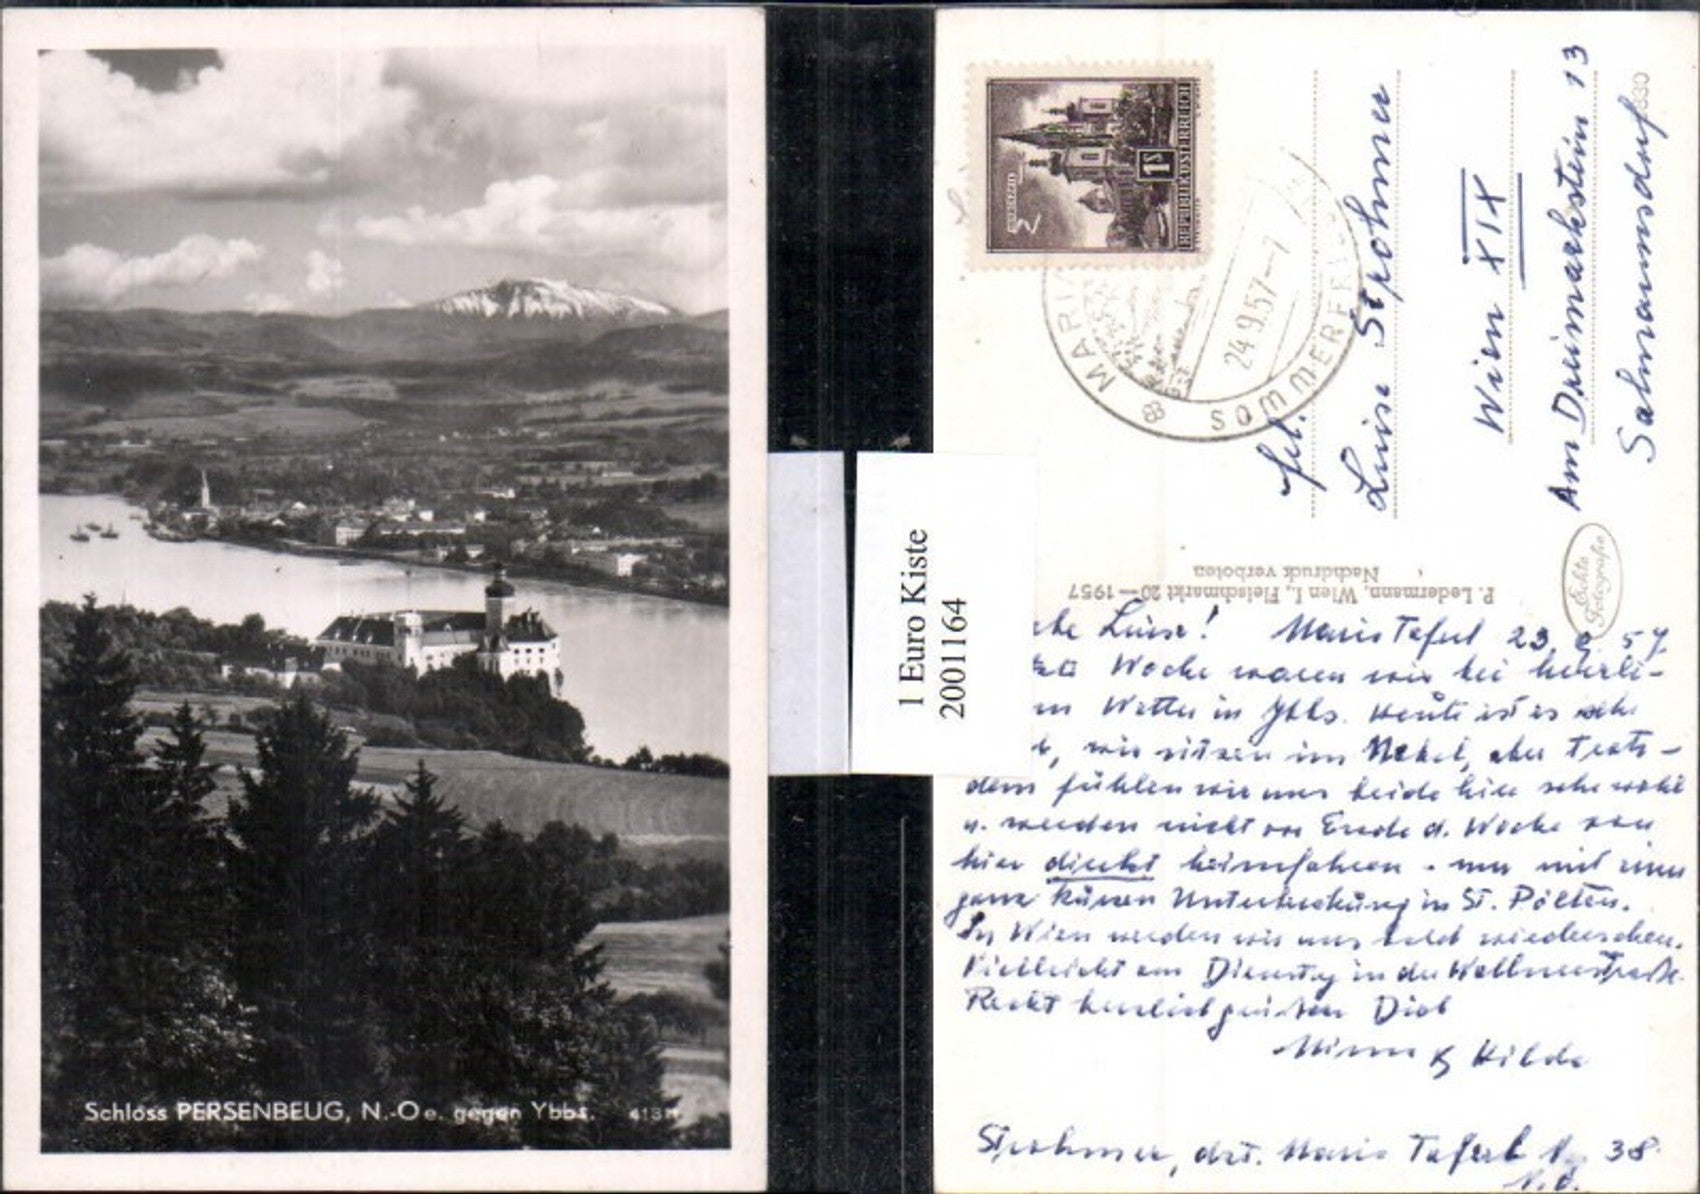 Schloss PERSENBEUG, N.-Oe. gegen Ybbs. 413 m
1 Euro Kiste
2001164
1 S
REPUBLIK ÖSTERREICH
MARIAZELL
MARIA
24.9.57-7
SOMMERFRI
Frl.
Luise Strohmer
Wien XIX
Am Dreimarkstein 13
Salmannsdorf
830
P. Ledermann, Wien I., Fleischmarkt 20 — 1957
Nachdruck verboten
Echte Fotografie
Luise! Maria Taferl 23. 9. 57.
Woche waren wir bei herrli-
Wetter in Ybbs. Heute ist es sehr
wir sitzen im Nebel, aber trotz-
dem fühlen wir uns beide hier sehr wohl
u. werden nicht vor Ende d. Woche von
hier direkt heimfahren - nur mit einer
ganz kurzen Unterbrechung in St. Pölten.
In Wien werden wir uns bald wiedersehen.
Vielleicht am Dienstag in der Wallnerstraße.
Recht herzlich grüßen Dich
Minna & Hilde
Strohmer, dzt. Maria Taferl N. 38
N.Ö.